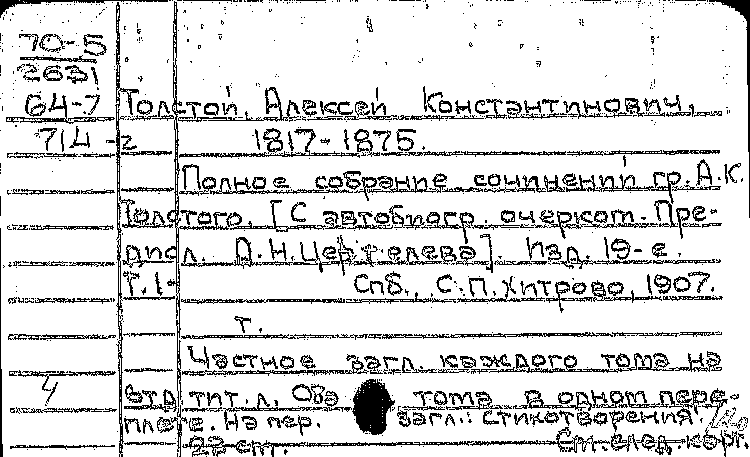 70-5
2631
64-7 Толстой, Алексей Константинович,
714-2 1817-1875.
Полное собрание сочинений гр. А.К.
Толстого. [С автобиогр. очерком. Пре-
дисл. Д.Н.Цертелева]. Изд. 19-е.
Т.1- Спб., С.П.Хитрово, 1907.
т.
Частное загл. каждого тома на
4 втр. тит. л. Оба тома в одном пере-
плете. На пер. загл.: Стихотворения.
23 cm. См. след. карт.